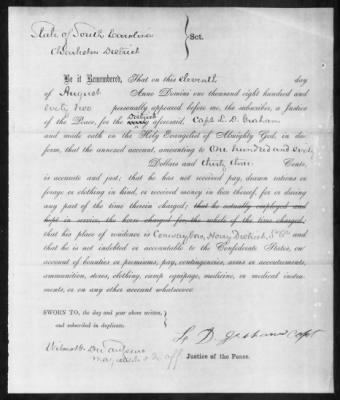 State of South Carolina
Charleston District } Sct.
Be it Remembered, That on this Eleventh day
of August Anno Domini one thousand eight hundred and
sixty two personally appeared before me, the subscriber, a Justice
of the Peace, for the District aforesaid, Capt L. D. Graham
and made oath on the Holy Evangelist of Almighty God, in due
form, that the annexed account, amounting to one hundred and
Dollars and thirty three Cents,
is accurate and just; that he has not received pay, drawn rations or
forage or clothing in kind, or received money in lieu thereof, for or during
any part of the time therein charged; that he actually employed and
kept in service, the horse charged for the whole of the time charged;
that his place of residence is Conwayboro, Horry District, So Ca and
that he is not indebted or accountable to the Confederate States, on
account of bounties or premiums, pay, contingencies, arms or accoutrements,
ammunition, stores, clothing, camp equipage, medicine, or medical instru-
ments, or on any other account whatsoever.
SWORN TO, the day and year above written,
and subscribed in duplicate.
L D Graham Capt
Wilmot G.
Magistrate
Justice of the Peace.